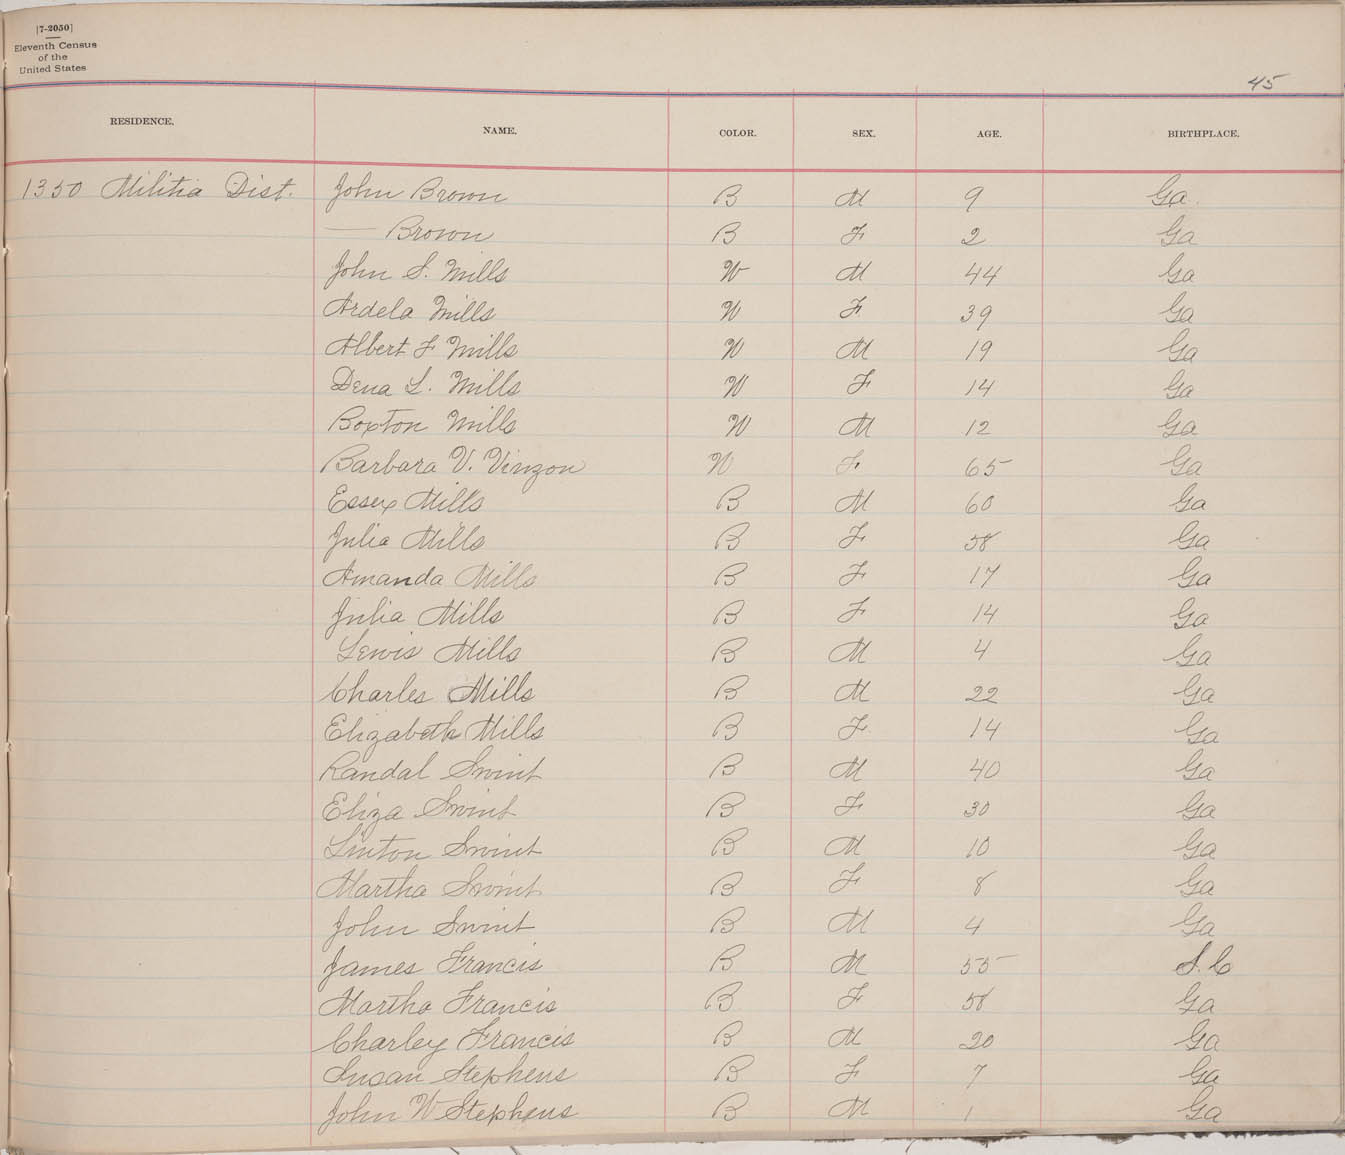 [7-2050]
Eleventh Census
of the
United States
45
RESIDENCE. NAME. COLOR. SEX. AGE. BIRTHPLACE.
1350 Militia Dist. John Brown B M 9 Ga.
— Brown B F 2 Ga
John S. Mills W M 44 Ga
Ardela Mills W F 39 Ga
Albert F Mills W M 19 Ga
Dena L. Mills W F 14 Ga
Boxton Mills W M 12 Ga
Barbara V. Vinzon W F 65 Ga
Essex Mills B M 60 Ga
Julia Mills B F 58 Ga
Amanda Mills B F 17 Ga
Julia Mills B F 14 Ga
Lewis Mills B M 4 Ga
Charles Mills B M 22 Ga
Elizabeth Mills B F 14 Ga
Randal Swint B M 40 Ga
Eliza Swint B F 30 Ga
Linton Swint B M 10 Ga
Martha Swint B F 8 Ga
John Swint B M 4 Ga
James Francis B M 55 S.C
Martha Francis B F 58 Ga
Charley Francis B M 20 Ga
Susan Stephens B F 7 Ga
John W Stephens B M 1 Ga